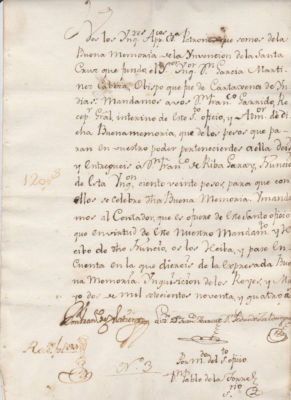 Nos los Inq.res App.cos Patronos que somos de la
Buena Memoria de la Invencion de la Santa
Cruz que fundó el S.or Inq.r D.n Garcia Marti
nez Cabezas Obispo que fue de Cartaxena de Yn
dias. Mandamos a vos D.n Fran.co Garrido, Re
cep.r Gral, interino de Este S.to oficio, y Adm.or de
dicha Buenamemoria, que de los pesos que pa
ran en vuestro poder pertenecientes a ella deis
y Entregueis á D.n Fran.co de Riba Nuncio
de Esta Inq.on ciento veinte pesos para que con
ellos se celebre dha Buena Memoria. Y manda
mos al Contador, que es ó fuere de Este Santo oficio
que en virtud de Este Nuestro Mandam.to y Re
cibo de dho Nuncio os los Reciba, y pase En
Cuenta en la que diereis de la Expresada Bue
na Memoria. Inquisicion de los Reyes, y Ma
yo dos de mil setecientos noventa, y quatro a.s
120 p.s
Por m.do del S.to oficio
D.n Pablo de la Torre
S.rio
N.o 3